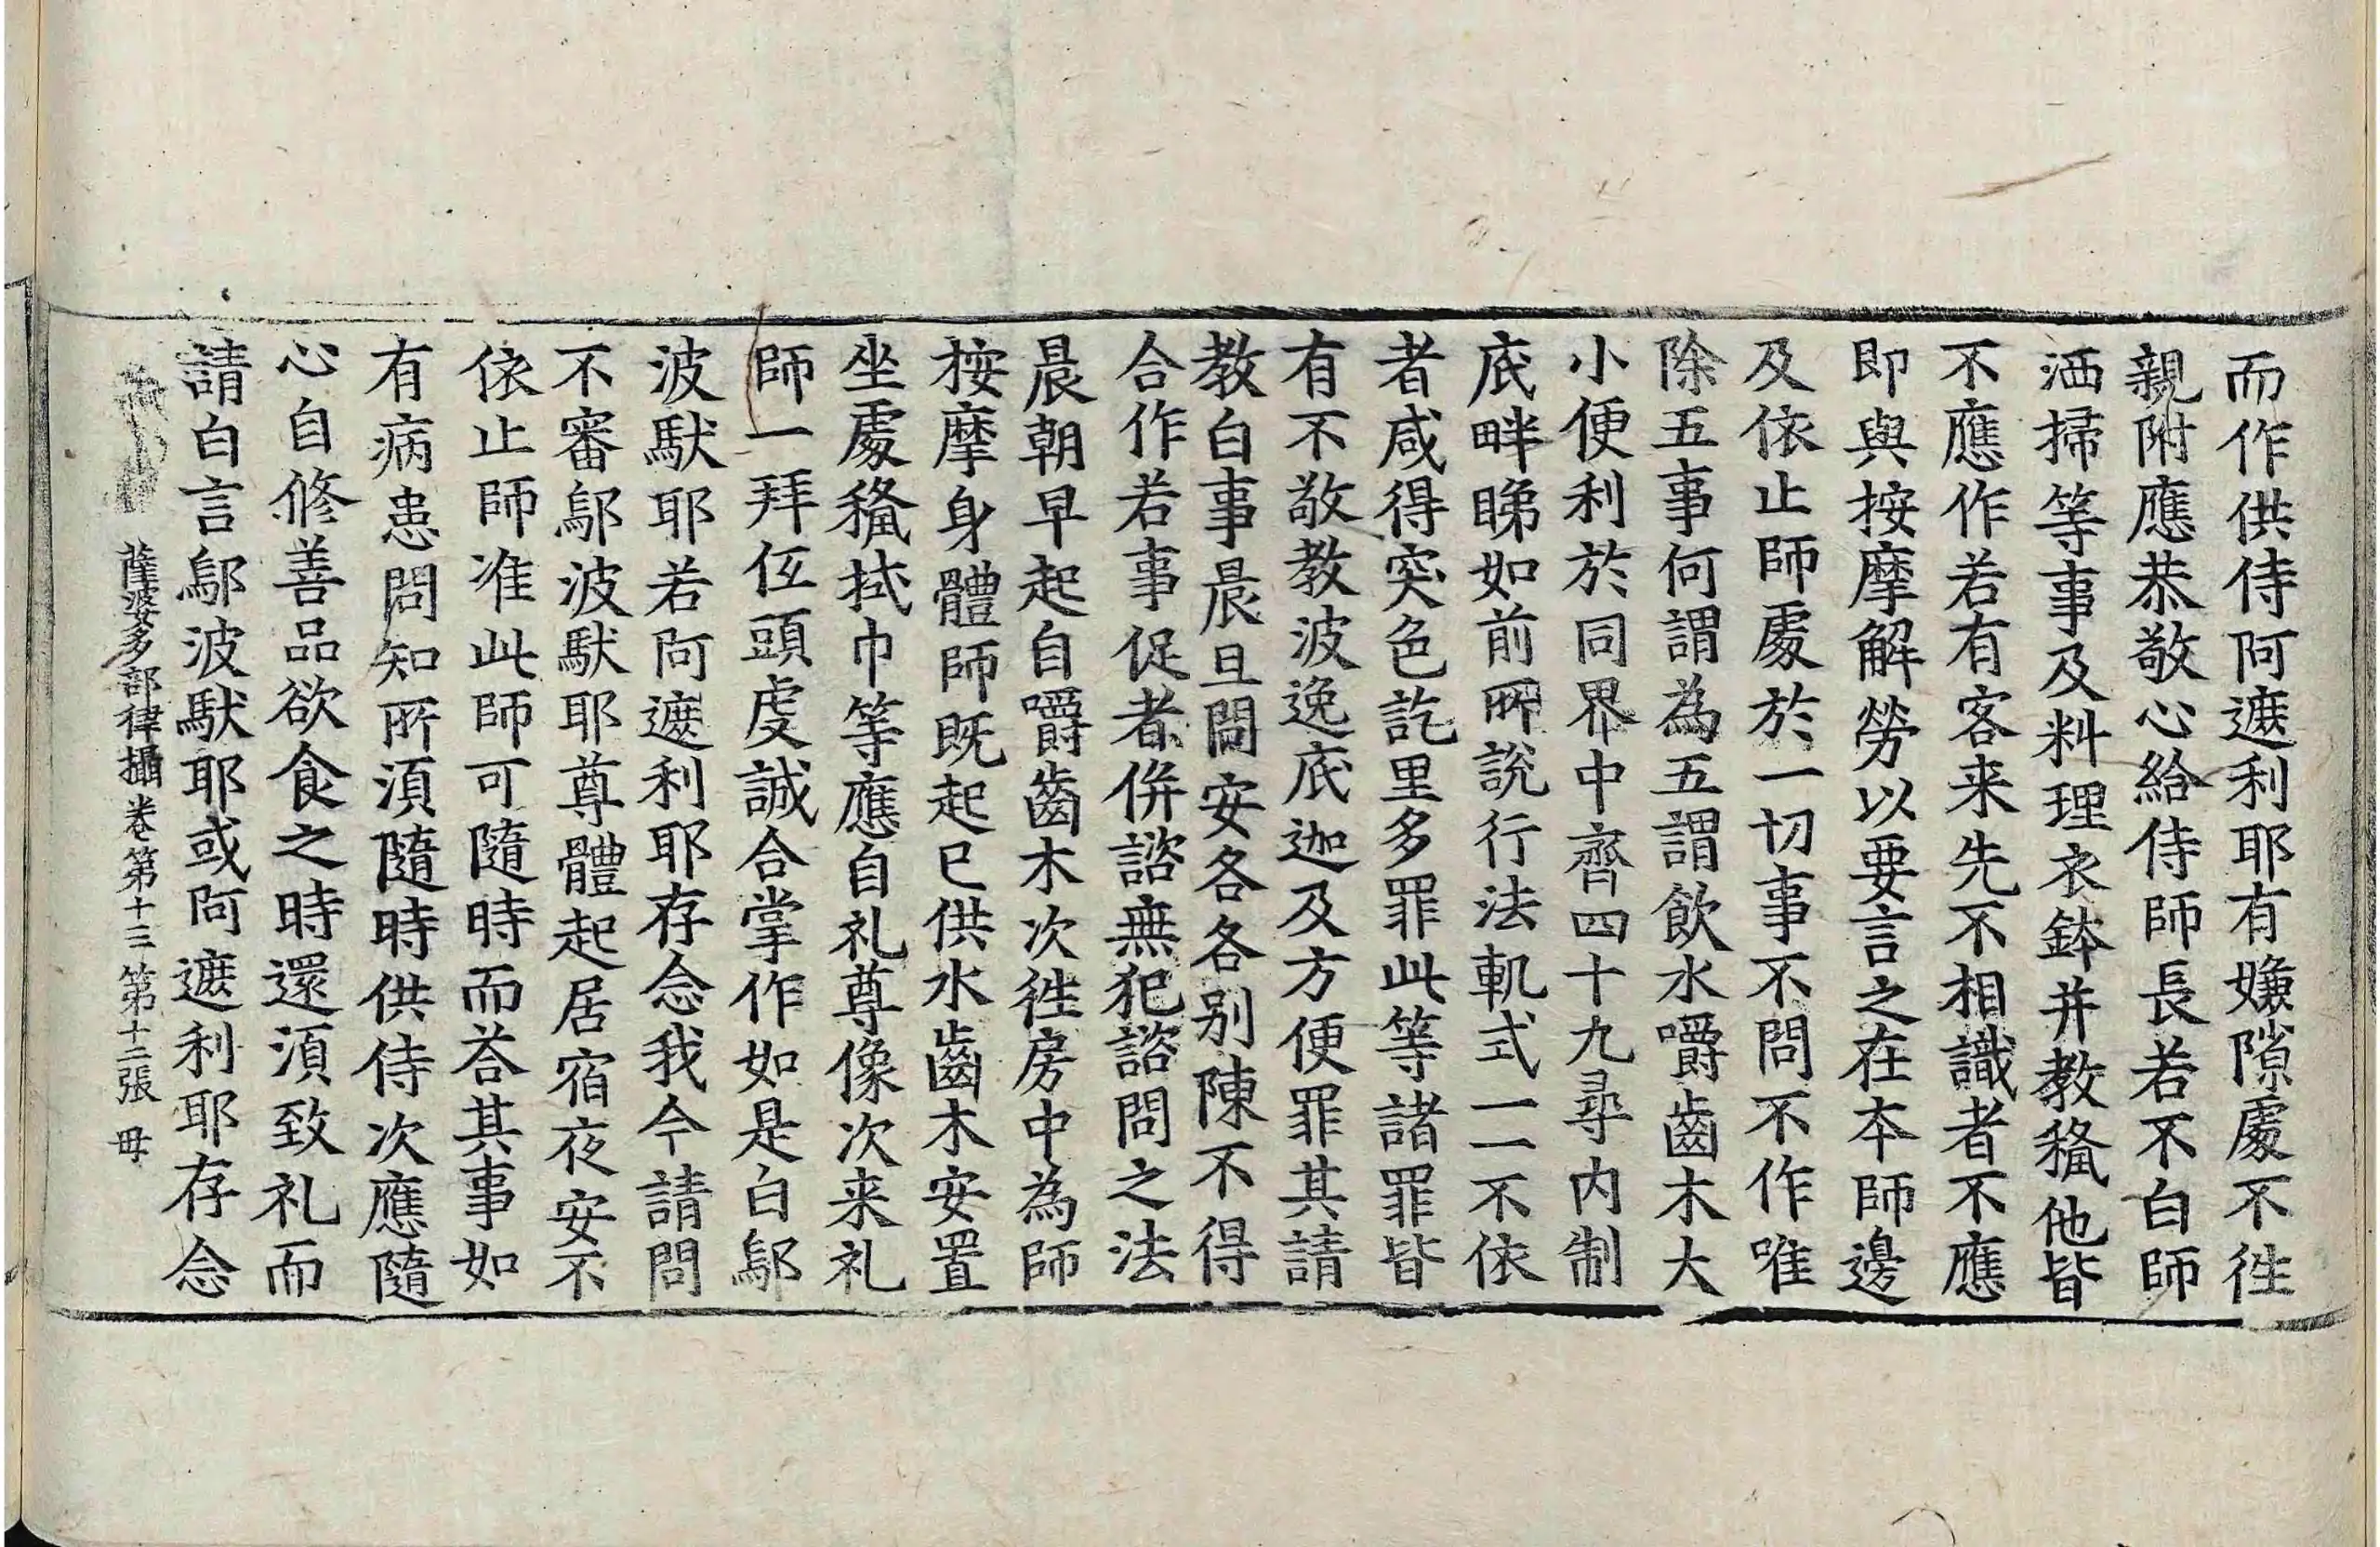 而作供侍阿遮利耶有嫌隙處不徃
親附應恭敬心給侍師長若不白師
洒掃等事及料理衣鉢并教授他皆
不應作若有客来先不相識者不應
即與按摩解勞以要言之在本師邊
及依止師處於一切事不問不作唯
除五事何謂為五謂飲水嚼齒木大
小便利於同界中齊四十九尋内制
底畔睇如前所說行法軌式一一不依
者咸得突色訖里多罪此等諸罪皆
有不敬教波逸底迦及方便罪其請
教白事晨旦問安各各别陳不得
合作若事促者併諮無犯諮問之法
晨朝早起自嚼齒木次徃房中為師
按摩身體師既起已供水齒木安置
坐處𥠖拭巾等應自礼尊像次来礼
師一拜低頭虔誠合掌作如是白鄔
波馱耶若阿遮利耶存念我今請問
不審鄔波馱耶尊體起居宿夜安不
依止師准此師可隨時而荅其事如
有病患問知所須隨時供侍次應隨
心自修善品欲食之時還須致礼而
請白言鄔波馱耶或阿遮利耶存念
薩婆多部律攝卷第十三 第十二張 毋